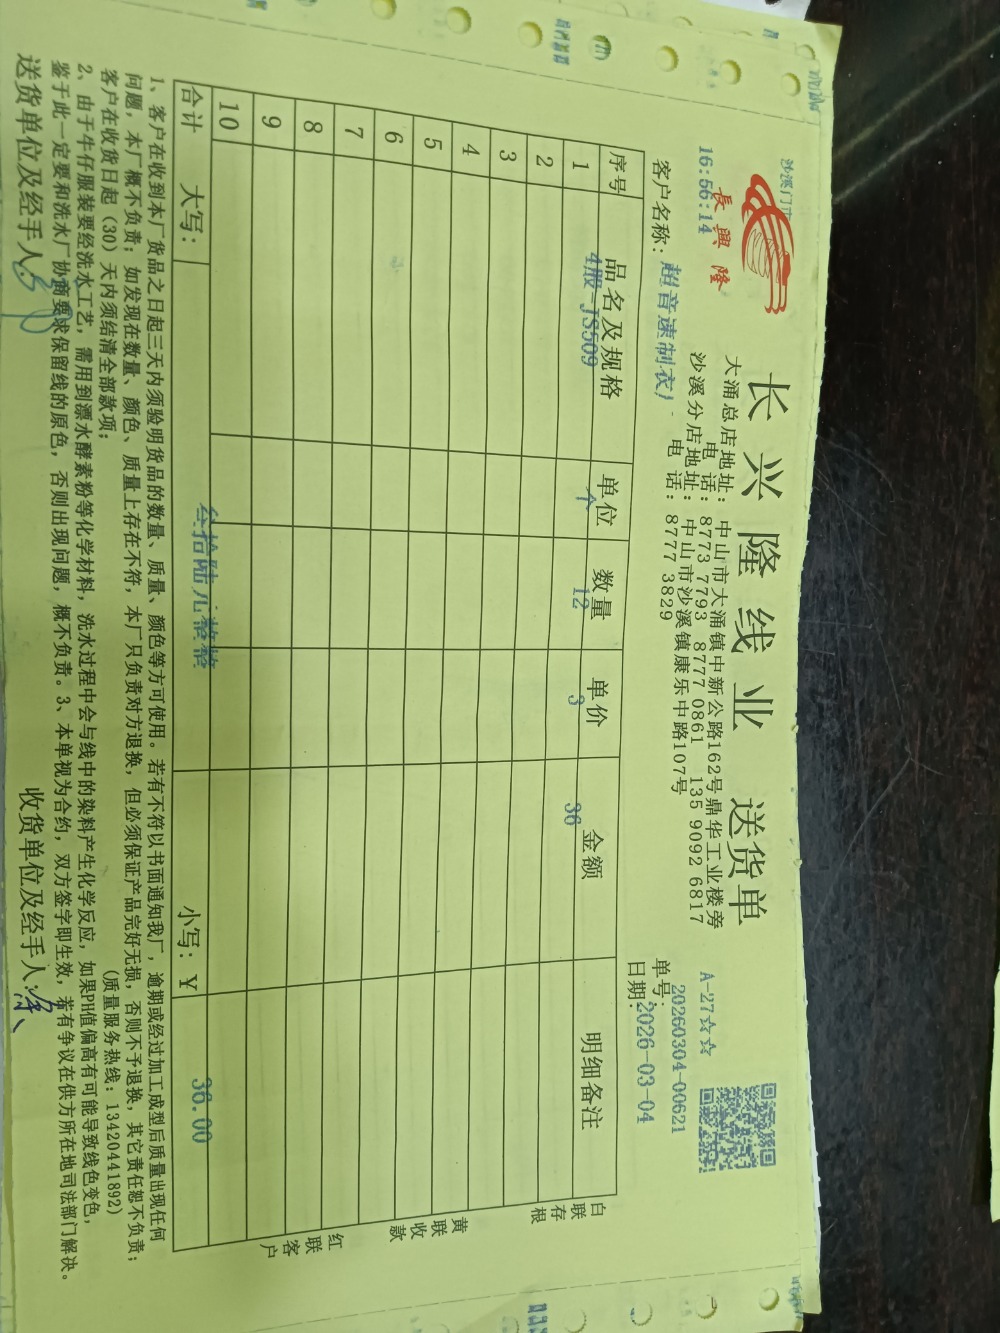 沙溪门市
長興隆
16:56:14
长兴隆线业 送货单
A-27☆☆
大涌总店地址：中山市大涌镇中新公路162号鼎华工业楼旁
电话：8773 7793 8777 0861 135 9092 6817
沙溪分店地址：中山市沙溪镇康乐中路107号
电话：8777 3829
单号：20260304-00621
客户名称：超音速制衣厂
日期：2026-03-04
序号 品名及规格 单位 数量 单价 金额 明细备注
1 4股-JS509 个 12 3 36
2
3
4
5
6
7
8
9
10
合计 大写： 叁拾陆元整整 小写：￥ 36.00
白联存根
黄联收款
红联客户
1、客户在收到本厂货品之日起三天内须验明货品的数量、质量、颜色等方可使用。若有不符以书面通知我厂，逾期或经过加工成型后质量出现任何
问题，本厂概不负责；如发现在数量、颜色、质量上存在不符，本厂只负责对方退换，但必须保证产品完好无损，否则不予退换，其它责任恕不负责；
客户在收货日起（30）天内须结清全部款项； (质量服务热线：13420441892)
2、由于牛仔服装要经洗水工艺，需用到漂水酵素粉等化学材料，洗水过程中会与线中的染料产生化学反应，如果PH值偏高有可能导致线色变色，
鉴于此一定要和洗水厂协商要求保留线的原色，否则出现问题，概不负责。3、本单视为合约，双方签字即生效，若有争议在供方所在地司法部门解决。
送货单位及经手人： 收货单位及经手人：